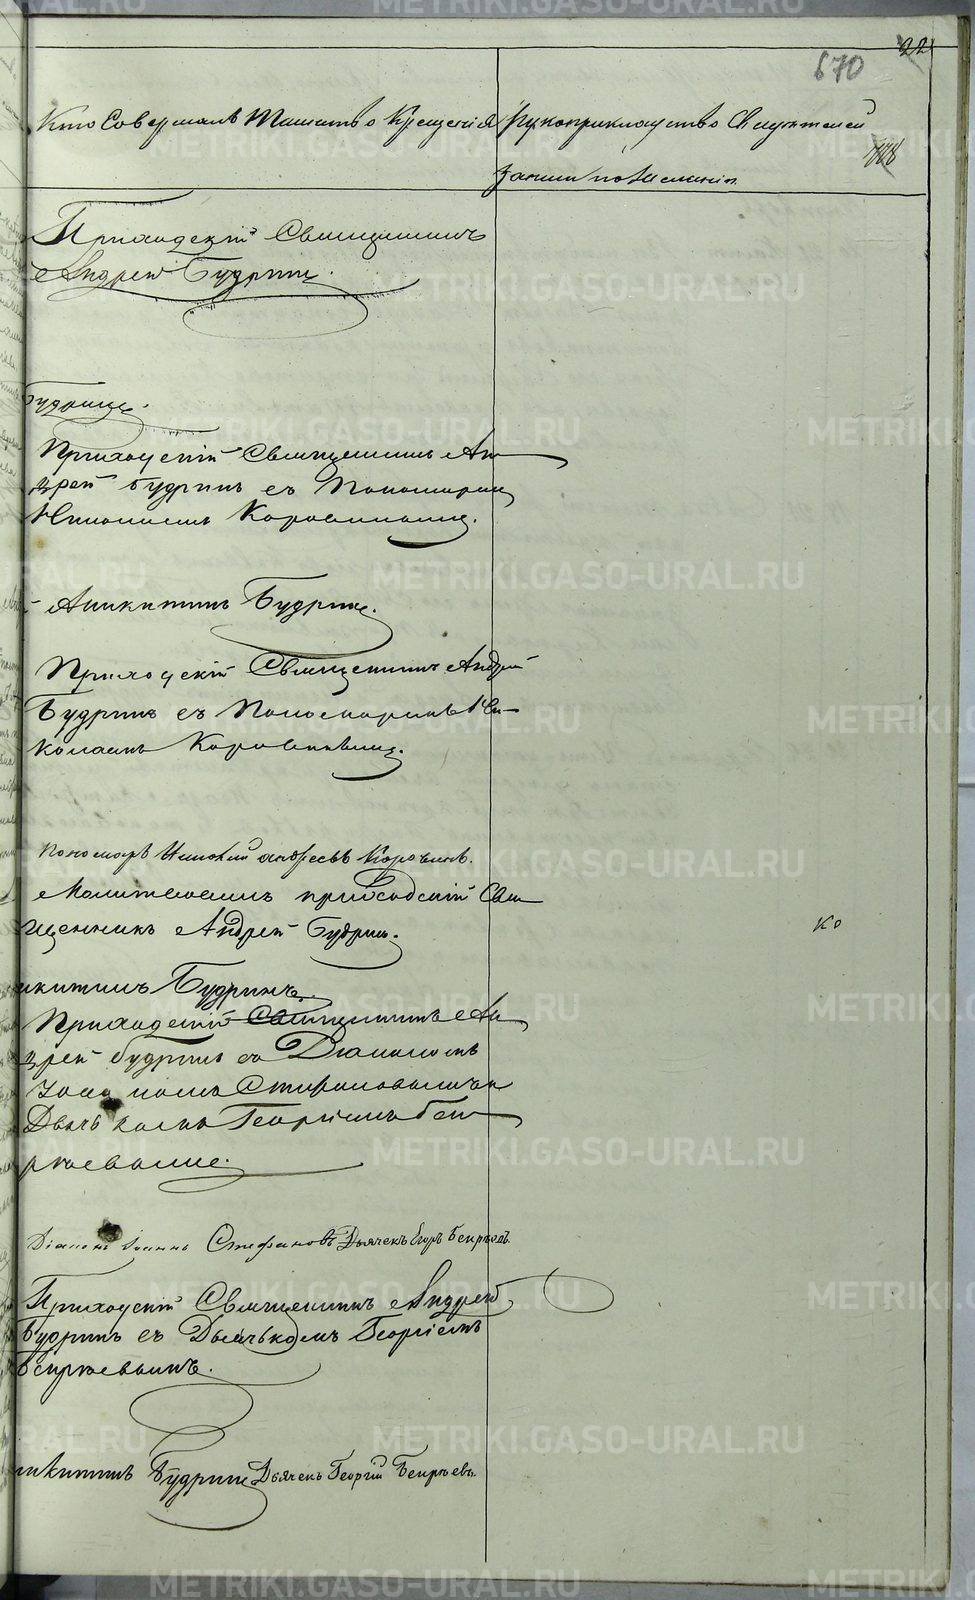 670
22
Кто Совершалъ Таинство Крещенія
Рукоприкладство Свидѣтелей
записи по желанію
Приходскій Священникъ
Андрей Будринъ.
Будринъ.
Приходскій Священникъ Ан
дрей Будринъ съ Пономаремъ
Николаемъ Коровинымъ.
Аникитинъ Будринъ.
Приходскій Священникъ Андрей
Будринъ съ Пономаремъ Ни
колаемъ Коровинымъ.
Пономарь Николай Андреевъ Коровинъ.
Молитвовалъ приходскій Свя
щенникъ Андрей Будринъ.
ко
икитинъ Будринъ.
Приходскій Священникъ Ан
дрей Будринъ съ Діакономъ
Іоанномъ Стефановымъ и
Дьячкомъ Георгіемъ
Діаконъ Іоаннъ Стефановъ Дьячекъ Егоръ
Приходскій Священникъ Андрей
Будринъ съ Дьячькомъ Георгіемъ
икитинъ Будринъ Дьячекъ Георгій
METRIKI.GASO-URAL.RU